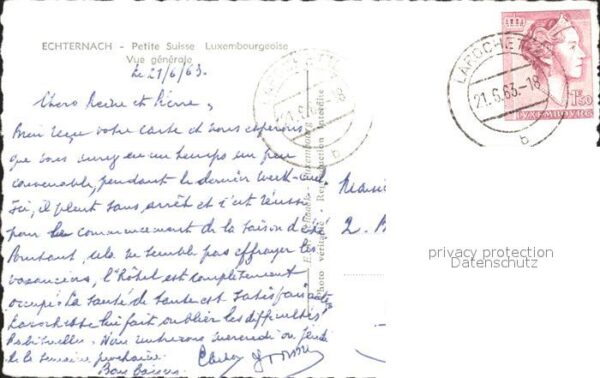 ECHTERNACH - Petite Suisse Luxembourgeoise
Vue générale
Le 21/6/63.
Chers et Pierre,
Bien reçu votre carte et nous espérons
que vous aurez eu un temps un peu
convenable, pendant le dernier week-end.
Ici, il pleut sans arrêt et c'est réussi
pour le commencement de la saison d'été
Pourtant, cela ne semble pas effrayer les
vacanciers, l'hôtel est complètement
occupé. La santé de tante est satisfaisante,
Larochette lui fait oublier les difficultés
habituelles. Nous rentrerons mercredi ou jeudi
de la semaine prochaine.
Bons baisers.
LAROCHETTE
21.6.63-18
b
1F50
LUXEMBOURG
21.6.63-18
b
Photo véritable Reproduction interdite
2.
privacy protection
Datenschutz